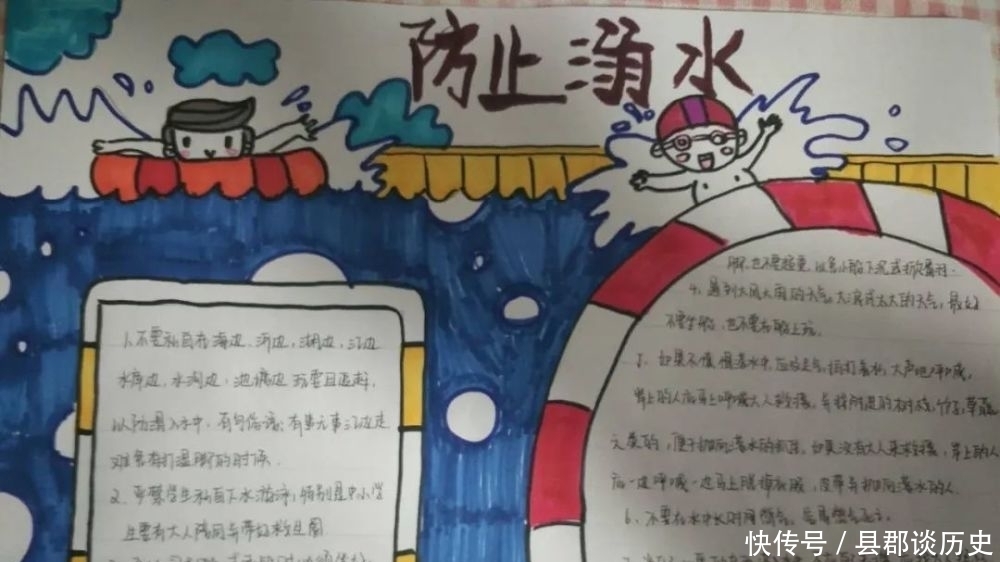 防止溺水
1、不要私自在海边、河边、湖边、江边
水库边、水沟边、池塘边玩耍且追赶,
以防滑入水中,有句俗话:有事无事江边走
难免有打湿脚的时候.
2、严禁学生私自下水游泳,特别是中小学
生要有大人陪同与带好救生圈
脚.也不要超重,以免小船下沉或掀翻.
4、遇到大风大雨的天气。大浪或太大的天气,最好
不要坐船,也不要在船上玩.
5、如果不慎滑落水中,应吸足气,拍打着水,大声地呼喊,
岸上的人应马上呼喊大人救援,寻找附近的树枝,竹子,草藤
之类的,便于抛向落水的
如果没有大人来救援,岸上的人
应一边呼喊一边马上脱掉衣服,皮带 抛向落水的人.
6、不要在水中长时间
快传号 / 县郡谈历史